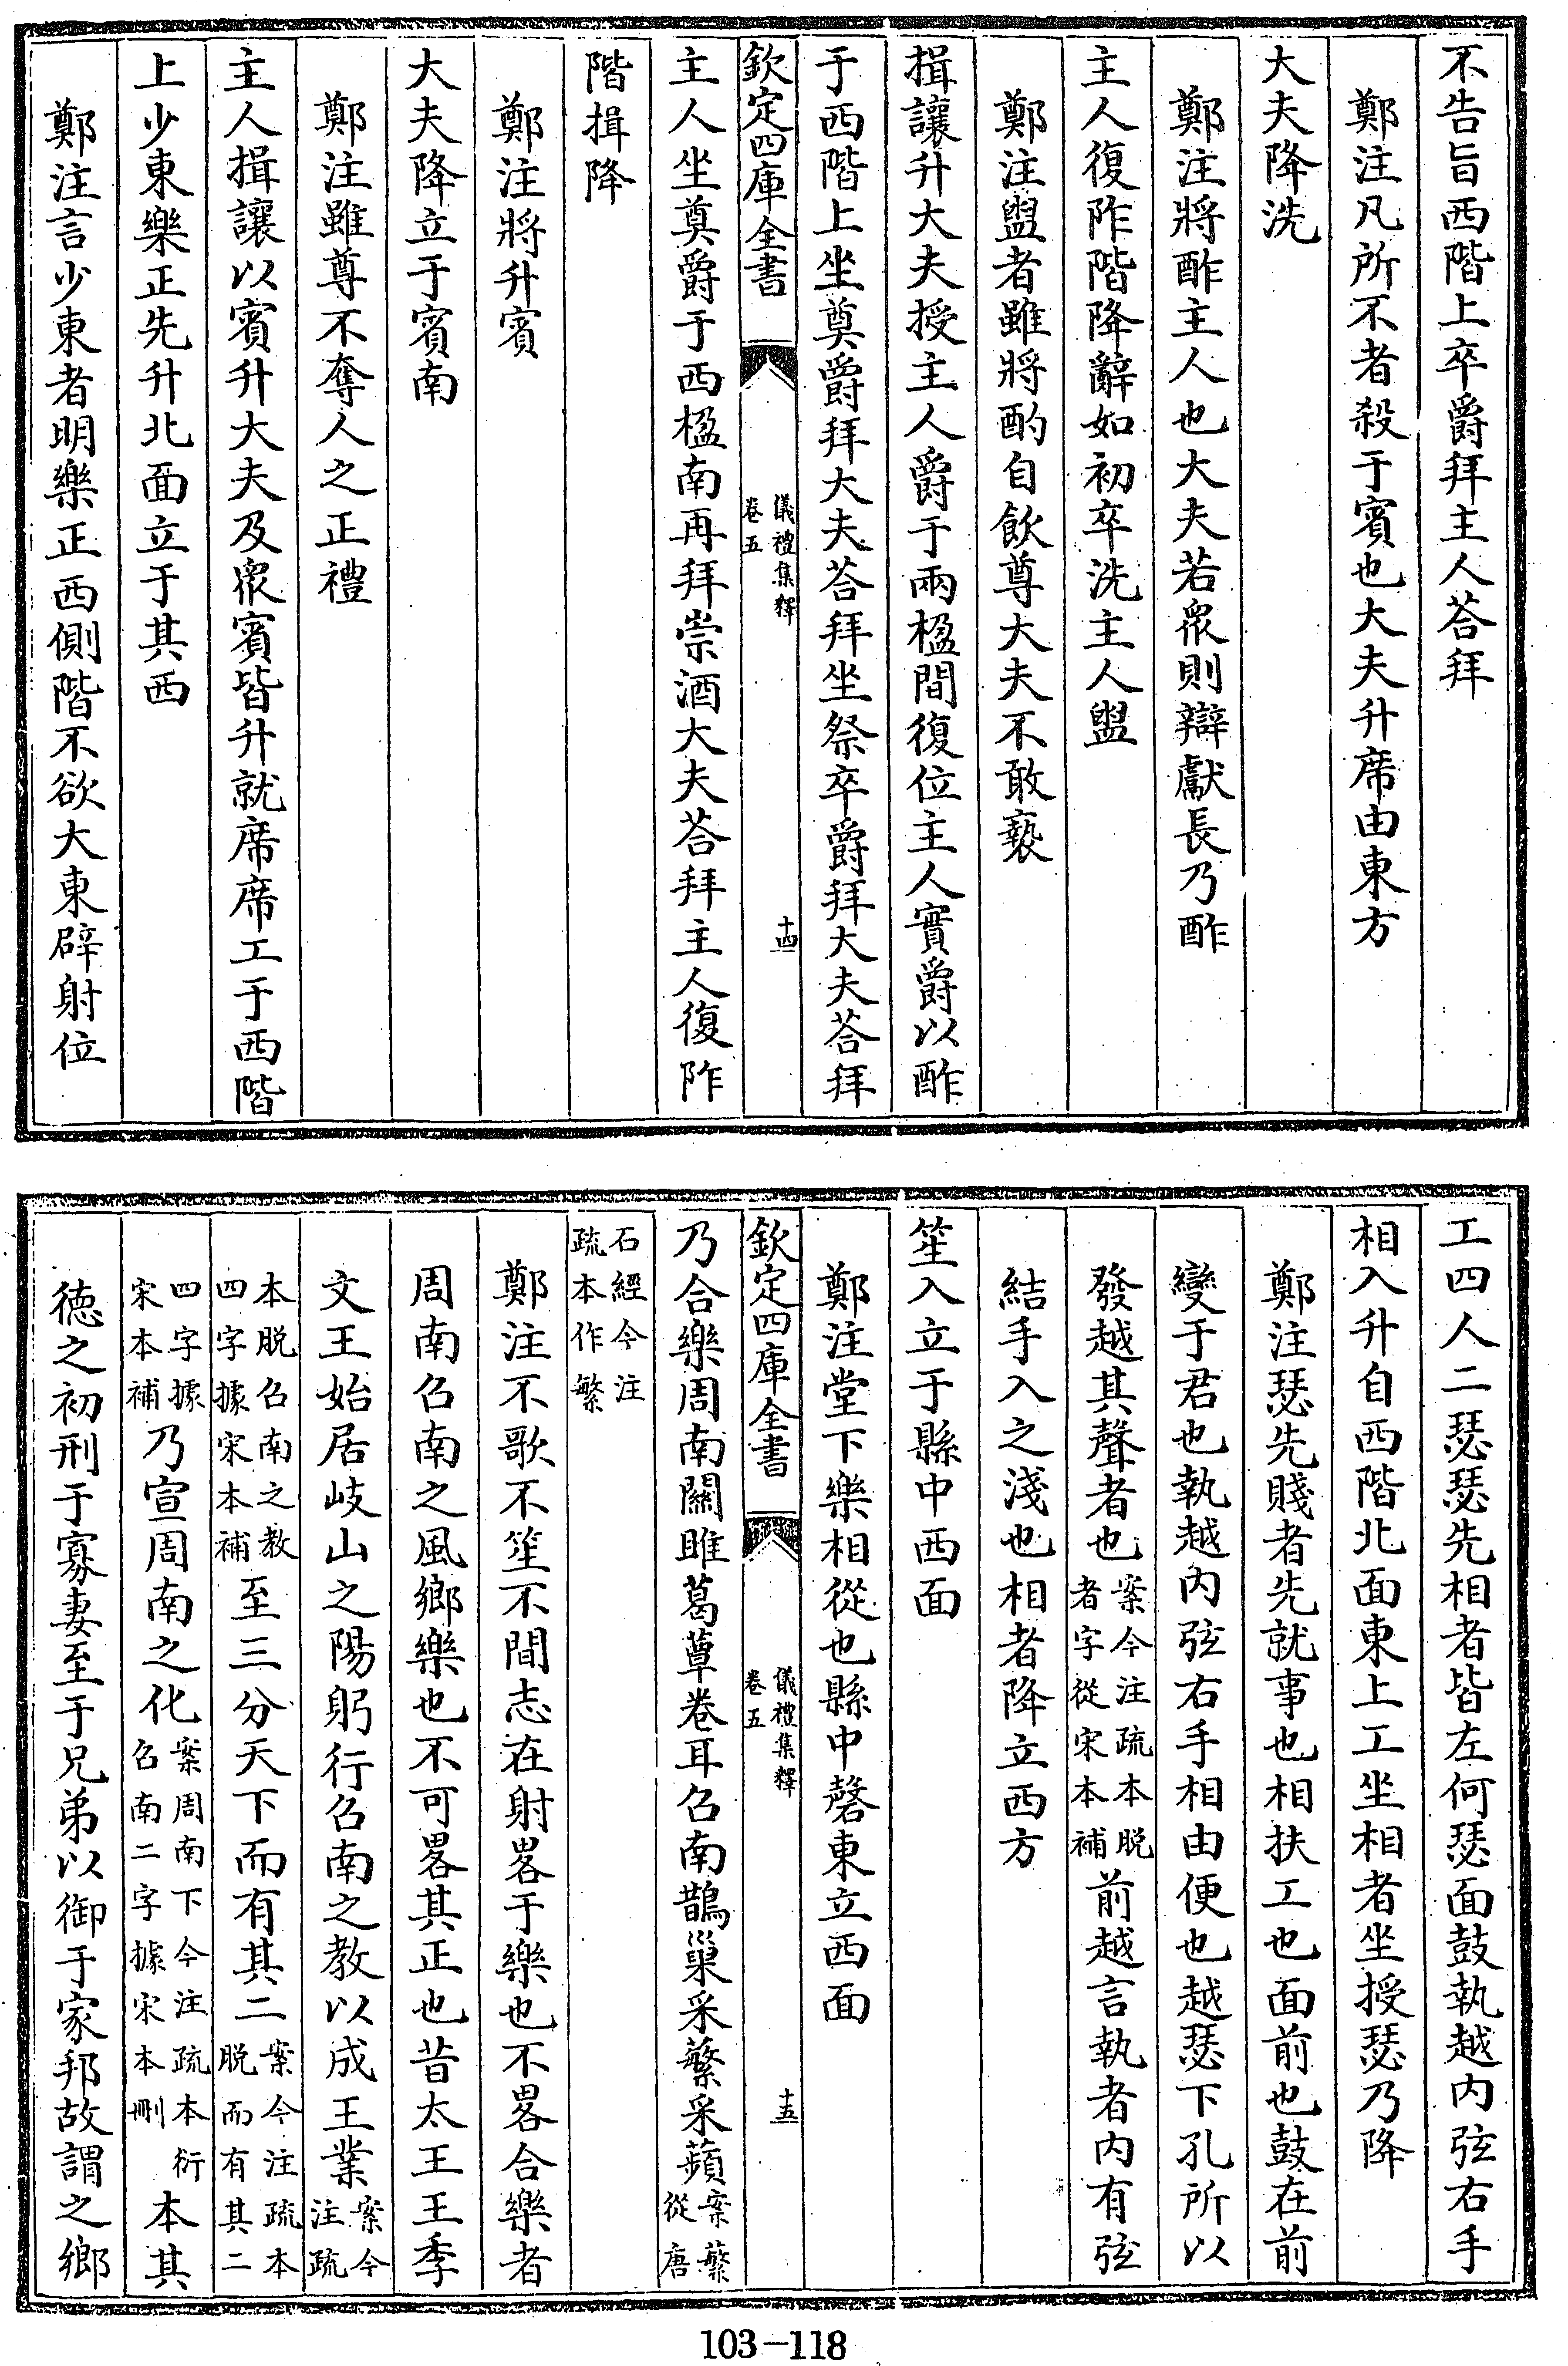 不告旨西階上卒爵拜主人荅拜
鄭注凡所不者殺于賓也大夫升席由東方
大夫降洗
鄭注將酢主人也大夫若衆則辯獻長乃酢
主人復阼階降辭如初卒洗主人盥
鄭注盥者雖將酌自飲尊大夫不敢褻
揖讓升大夫授主人爵于兩楹間復位主人實爵以酢
于西階上坐奠爵拜大夫荅拜坐祭卒爵拜大夫荅拜
欽定四庫全書
儀禮集釋
卷五
十四
主人坐奠爵于西楹南再拜崇酒大夫荅拜主人復阼
階揖降
鄭注將升賓
大夫降立于賓南
鄭注雖尊不奪人之正禮
主人揖讓以賓升大夫及衆賓皆升就席席工于西階
上少東樂正先升北面立于其西
鄭注言少東者明樂正西側階不欲大東辟射位
工四人二瑟瑟先相者皆左何瑟面鼓執越內弦右手
相入升自西階北面東上工坐相者坐授瑟乃降
鄭注瑟先賤者先就事也相扶工也面前也鼓在前
變于君也執越內弦右手相由便也越瑟下孔所以
發越其聲者也案今注疏本脱者字從宋本補前越言執者內有弦
結手入之淺也相者降立西方
笙入立于縣中西面
鄭注堂下樂相從也縣中磬東立西面
欽定四庫全書
儀禮集釋
卷五
十五
乃合樂周南關雎葛蕈卷耳召南鵲巢采蘩采蘋案蘩從唐
石經今注疏本作繁
鄭注不歌不笙不間志在射畧于樂也不畧合樂者
周南召南之風鄉樂也不可畧其正也昔太王王季
文王始居岐山之陽躬行召南之教以成王業案今注疏
本脱召南之教四字據宋本補至三分天下而有其二案今注疏本脱而有其二
四字據宋本補乃宣周南之化案周南下今注疏本衍召南二字據宋本刪本其
德之初刑于寡妻至于兄弟以御于家邦故謂之鄉
103-118